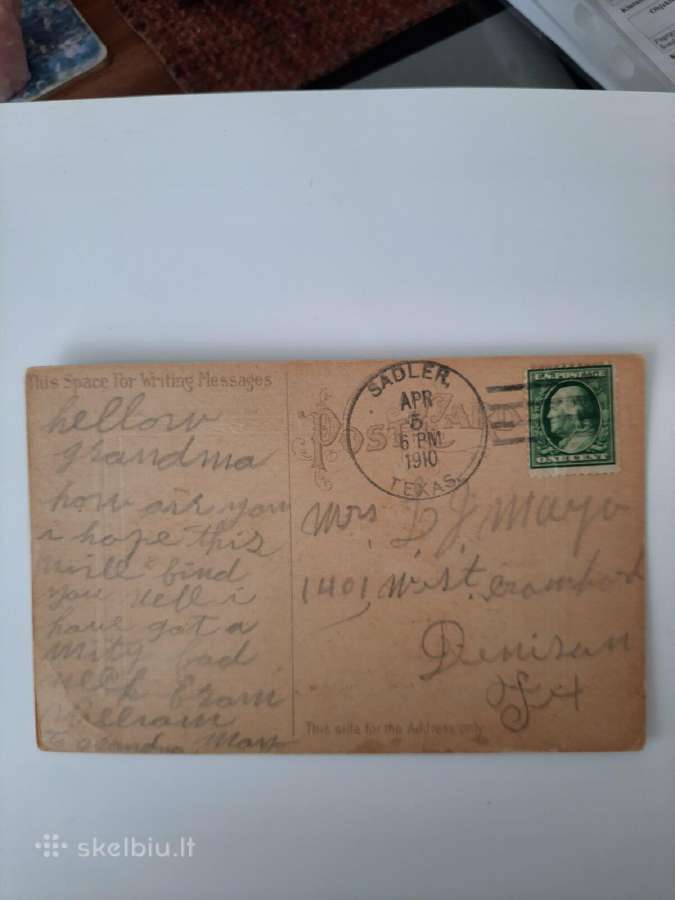 This Space For Writing Messages
hellow
grandma
how air you
i hope this
will find
you well i
have got a
mity bad
neck from
William
to grandma Mayo
POST CARD
SADLER,
APR
5
6 PM
1910
TEXAS.
U.S. POSTAGE
ONE CENT
Mrs J Mayo
1401 West. Crawford
Denison
Tex
This side for the Address only
skelbiu.lt